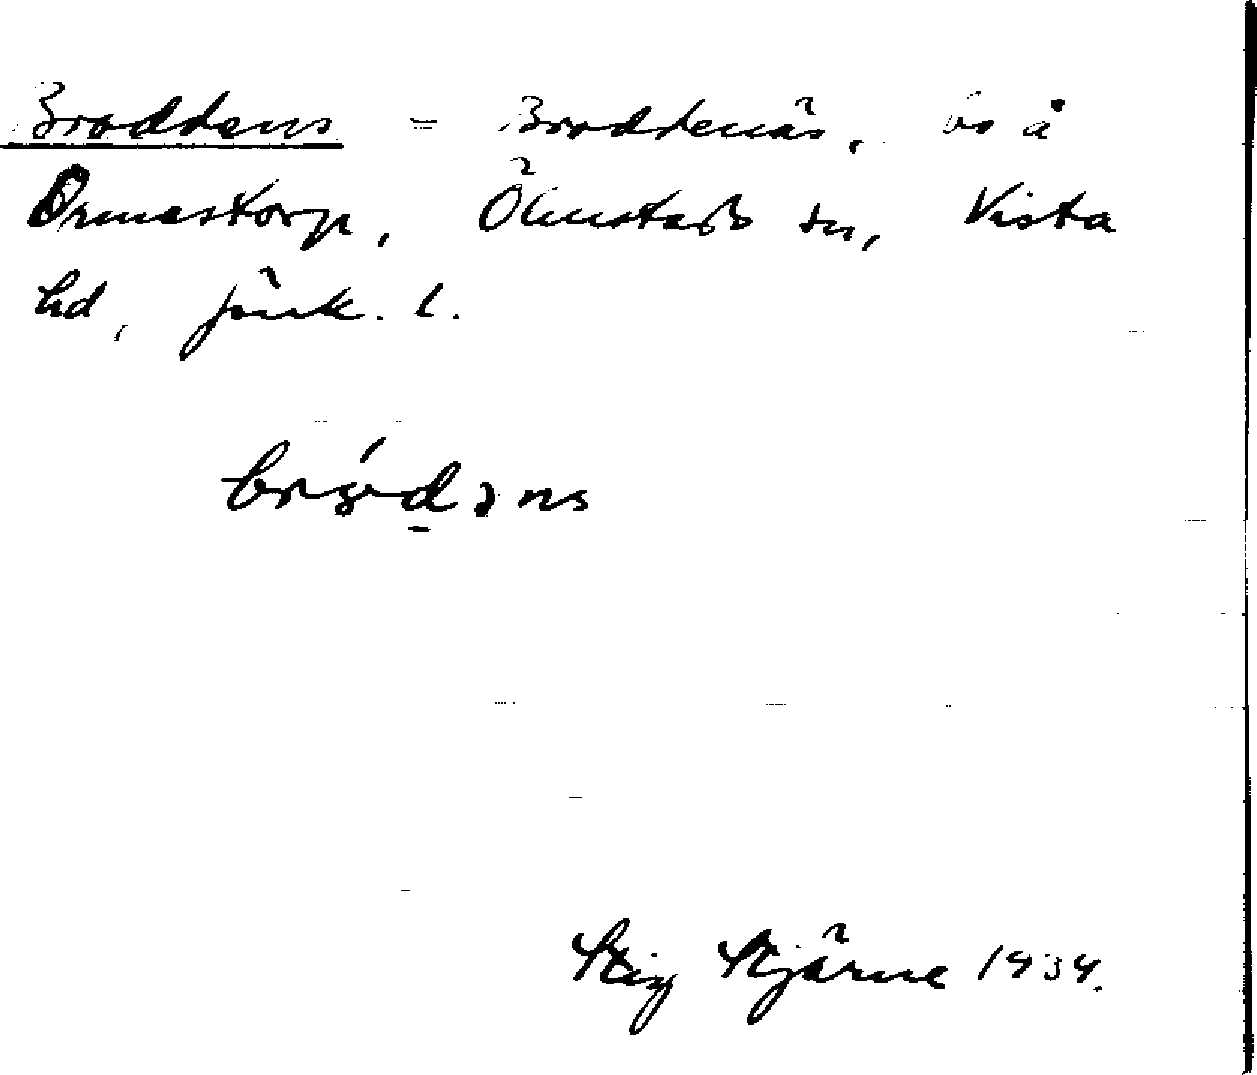 Broddens = Broddenäs, bs å
Ormestorp, Ölmstads sn, Vista
hd, Jönk. l.
Stig Stjärne 1934.